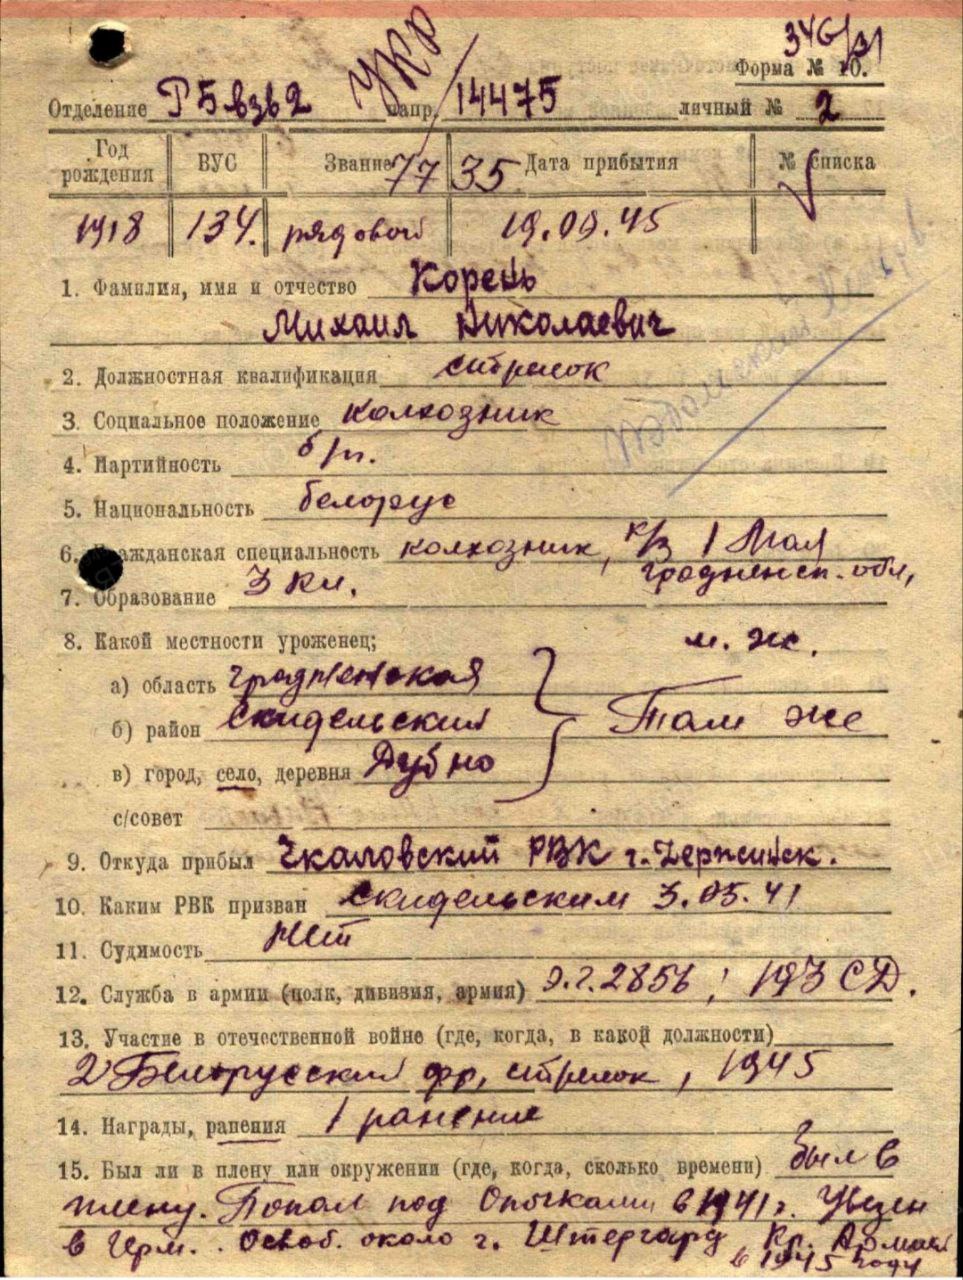 346/31
Форма № 10.
УКР
Отделение РБ взв 2 напр. 14475 личный № 2
Год рождения ВУС Звание 77 35 Дата прибытия № списка
1918 134. рядовой 19.09.45
1. Фамилия, имя и отчество Корень
Михаил Николаевич
2. Должностная квалификация стрелок
3. Социальное положение колхозник
4. Партийность б/п.
5. Национальность белорус
6. Гражданская специальность колхозник, к/з 1 Мая
гродненск. обл.,
7. Образование 3 кл.
8. Какой местности уроженец; м. ж.
а) область гродненская
б) район скидельский Там же
в) город, село, деревня Дубно
с/совет
9. Откуда прибыл Чкаловский РВК г. Держинск.
10. Каким РВК призван скидельским 3.05.41
11. Судимость нет
12. Служба в армии (полк, дивизия, армия) 193 СД.
13. Участие в отечественной войне (где, когда, в какой должности)
2 Белорусский фр, стрелок, 1945
14. Награды, ранения 1 ранение
15. Был ли в плену или окружении (где, когда, сколько времени) был в
плену. Попал под Опочками в 1941 г. Увезен
в Герм. Освоб. около г. Штергард Кр. Армией
в 1945 году